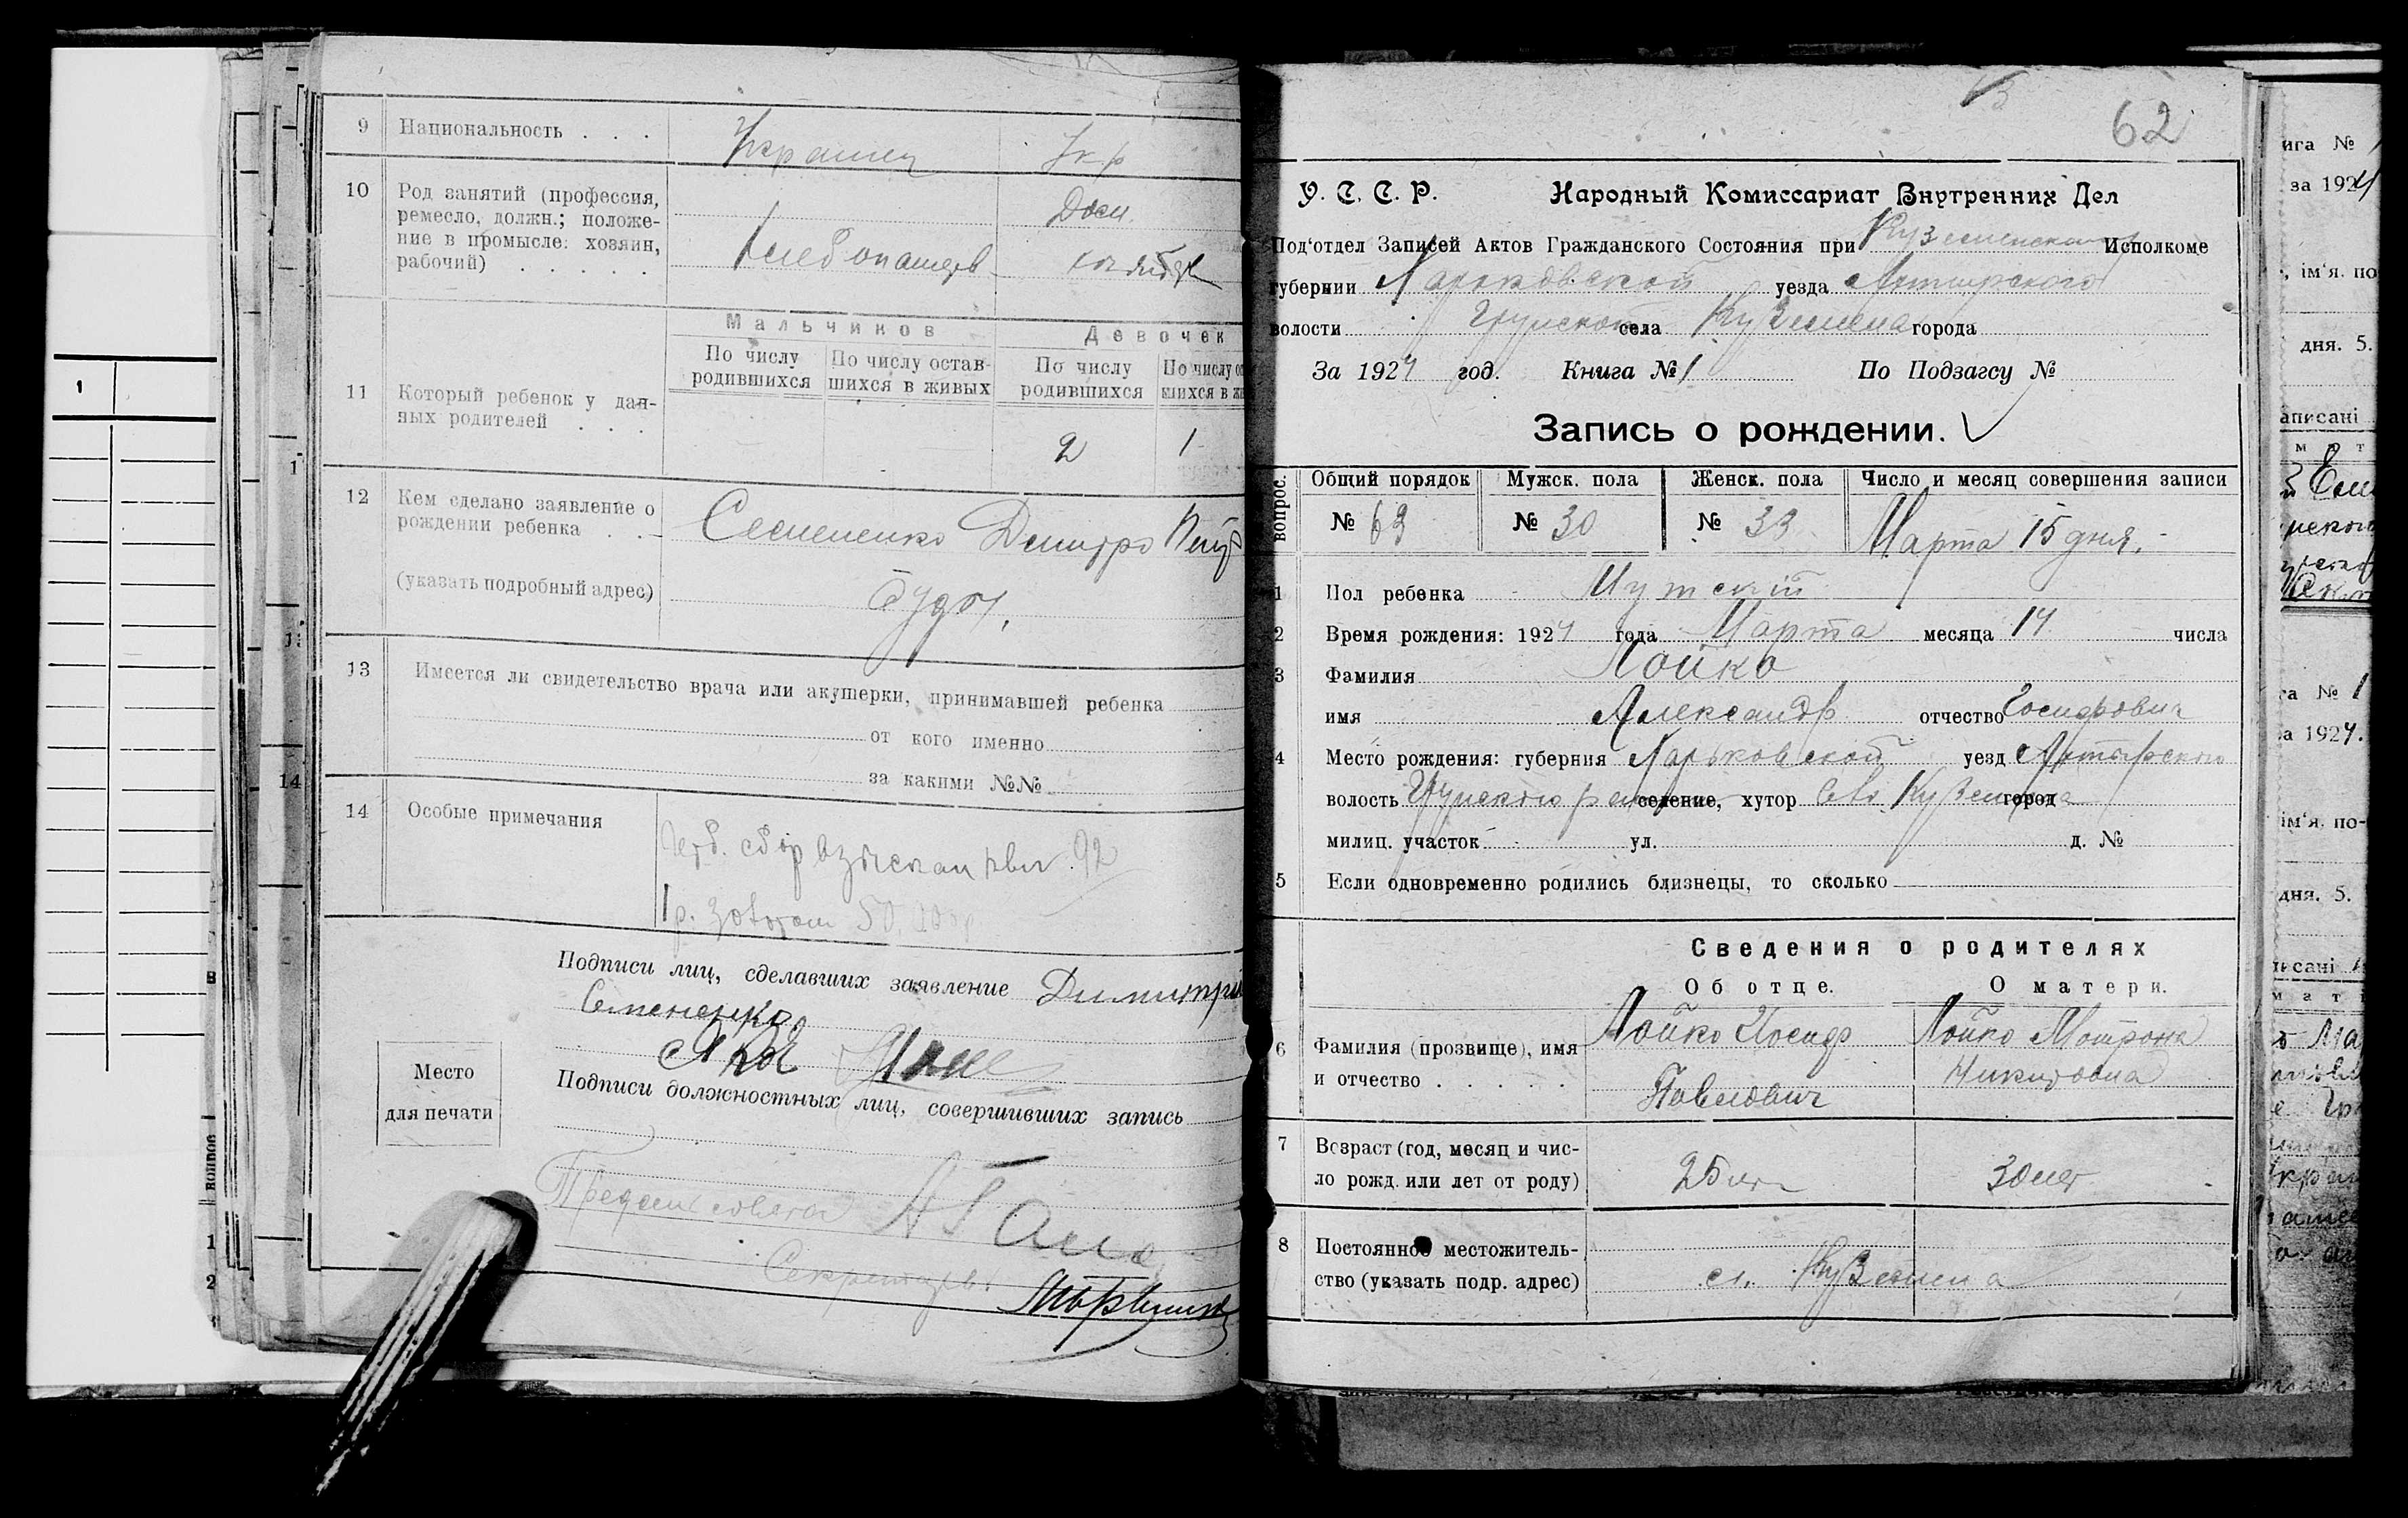 9 Национальность . . . Украинец Укр
10 Род занятий (профессия,
ремесло, должн.; положе-
ние в промысле: хозяин,
рабочий) . . . . .
Хлебопашец
Дом.
11 Который ребенок у дан-
ных родителей . . .
Мальчиков Девочек
По числу родившихся
По числу остав-
шихся в живых
По числу
родившихся
2 1
12 Кем сделано заявление о
рождении ребенка . . Семененко Дмитро
(указать подробный адрес)
Буды,
13 Имеется ли свидетельство врача или акушерки, принимавшей ребенка
от кого именно
за какими №№
14 Особые примечания
сбор взыскан 92
Подписи лиц, сделавших заявление Димитрій
Семененко
Место
для печати
Подписи должностных лиц, совершивших запись
Секретарь
62
У. С. С. Р. Народный Комиссариат Внутренних Дел
Под'отдел Записей Актов Гражданского Состояния при Куземенском Исполкоме
губернии Харьковской уезда Ахтырского
волости Грунской села Куземена города
За 1924 год. Книга № 1 По Подзагсу №
Запись о рождении.
вопрос. Общий порядок Мужск. пола Женск. пола Число и месяц совершения записи
№ 63 № 30 № 33 Марта 15 дня.
1 Пол ребенка Мужскій
2 Время рождения: 1924 года Марта месяца 14 числа
3 Фамилия Лойко
имя Александр отчество Іосифович
4 Место рождения: губерния Харьковской уезд Ахтырского
волость Грунского селение, хутор Куземена город
милиц. участок ул. д. №
5 Если одновременно родились близнецы, то сколько
Сведения о родителях
Об отце. О матери.
6 Фамилия (прозвище), имя
и отчество . . . . .
Лойко Иосиф
Павлович
Лойко Мотрона
Никитовна
7 Возраст (год, месяц и чис-
ло рожд. или лет от роду)
25 лет 30 лет
8 Постоянное местожитель-
ство (указать подр. адрес)
с. Куземена